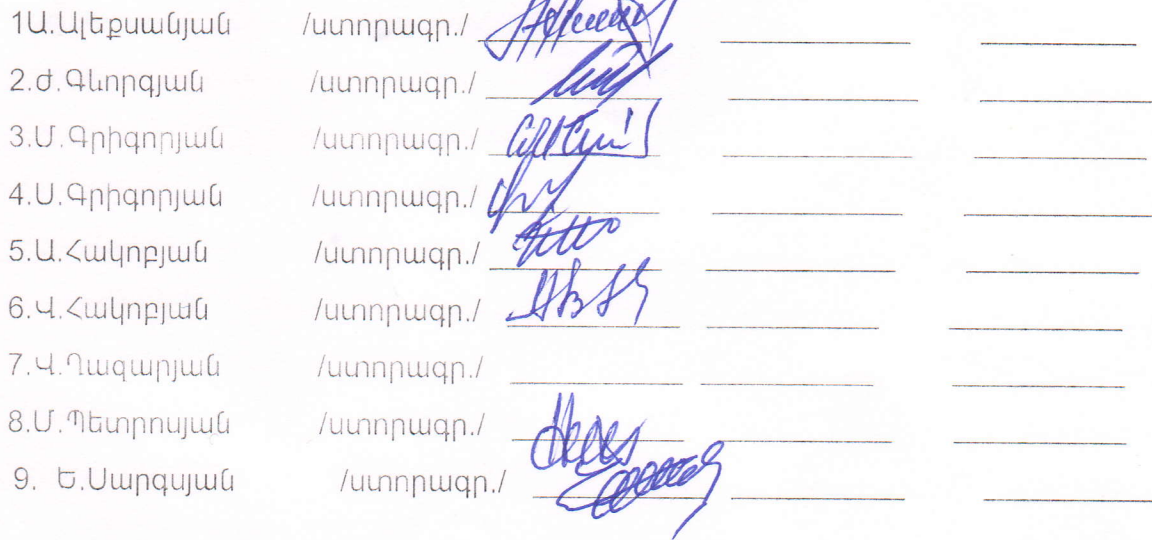 1Ա.Ալեքսանյան /ստորագր./
2.Ժ.Գևորգյան /ստորագր./
3.Մ.Գրիգորյան /ստորագր./
4.Ս.Գրիգորյան /ստորագր./
5.Ա.Հակոբյան /ստորագր./
6.Վ.Հակոբյան /ստորագր./
7.Վ.Ղազարյան /ստորագր./
8.Մ.Պետրոսյան /ստորագր./
9. Ե.Սարգսյան /ստորագր./